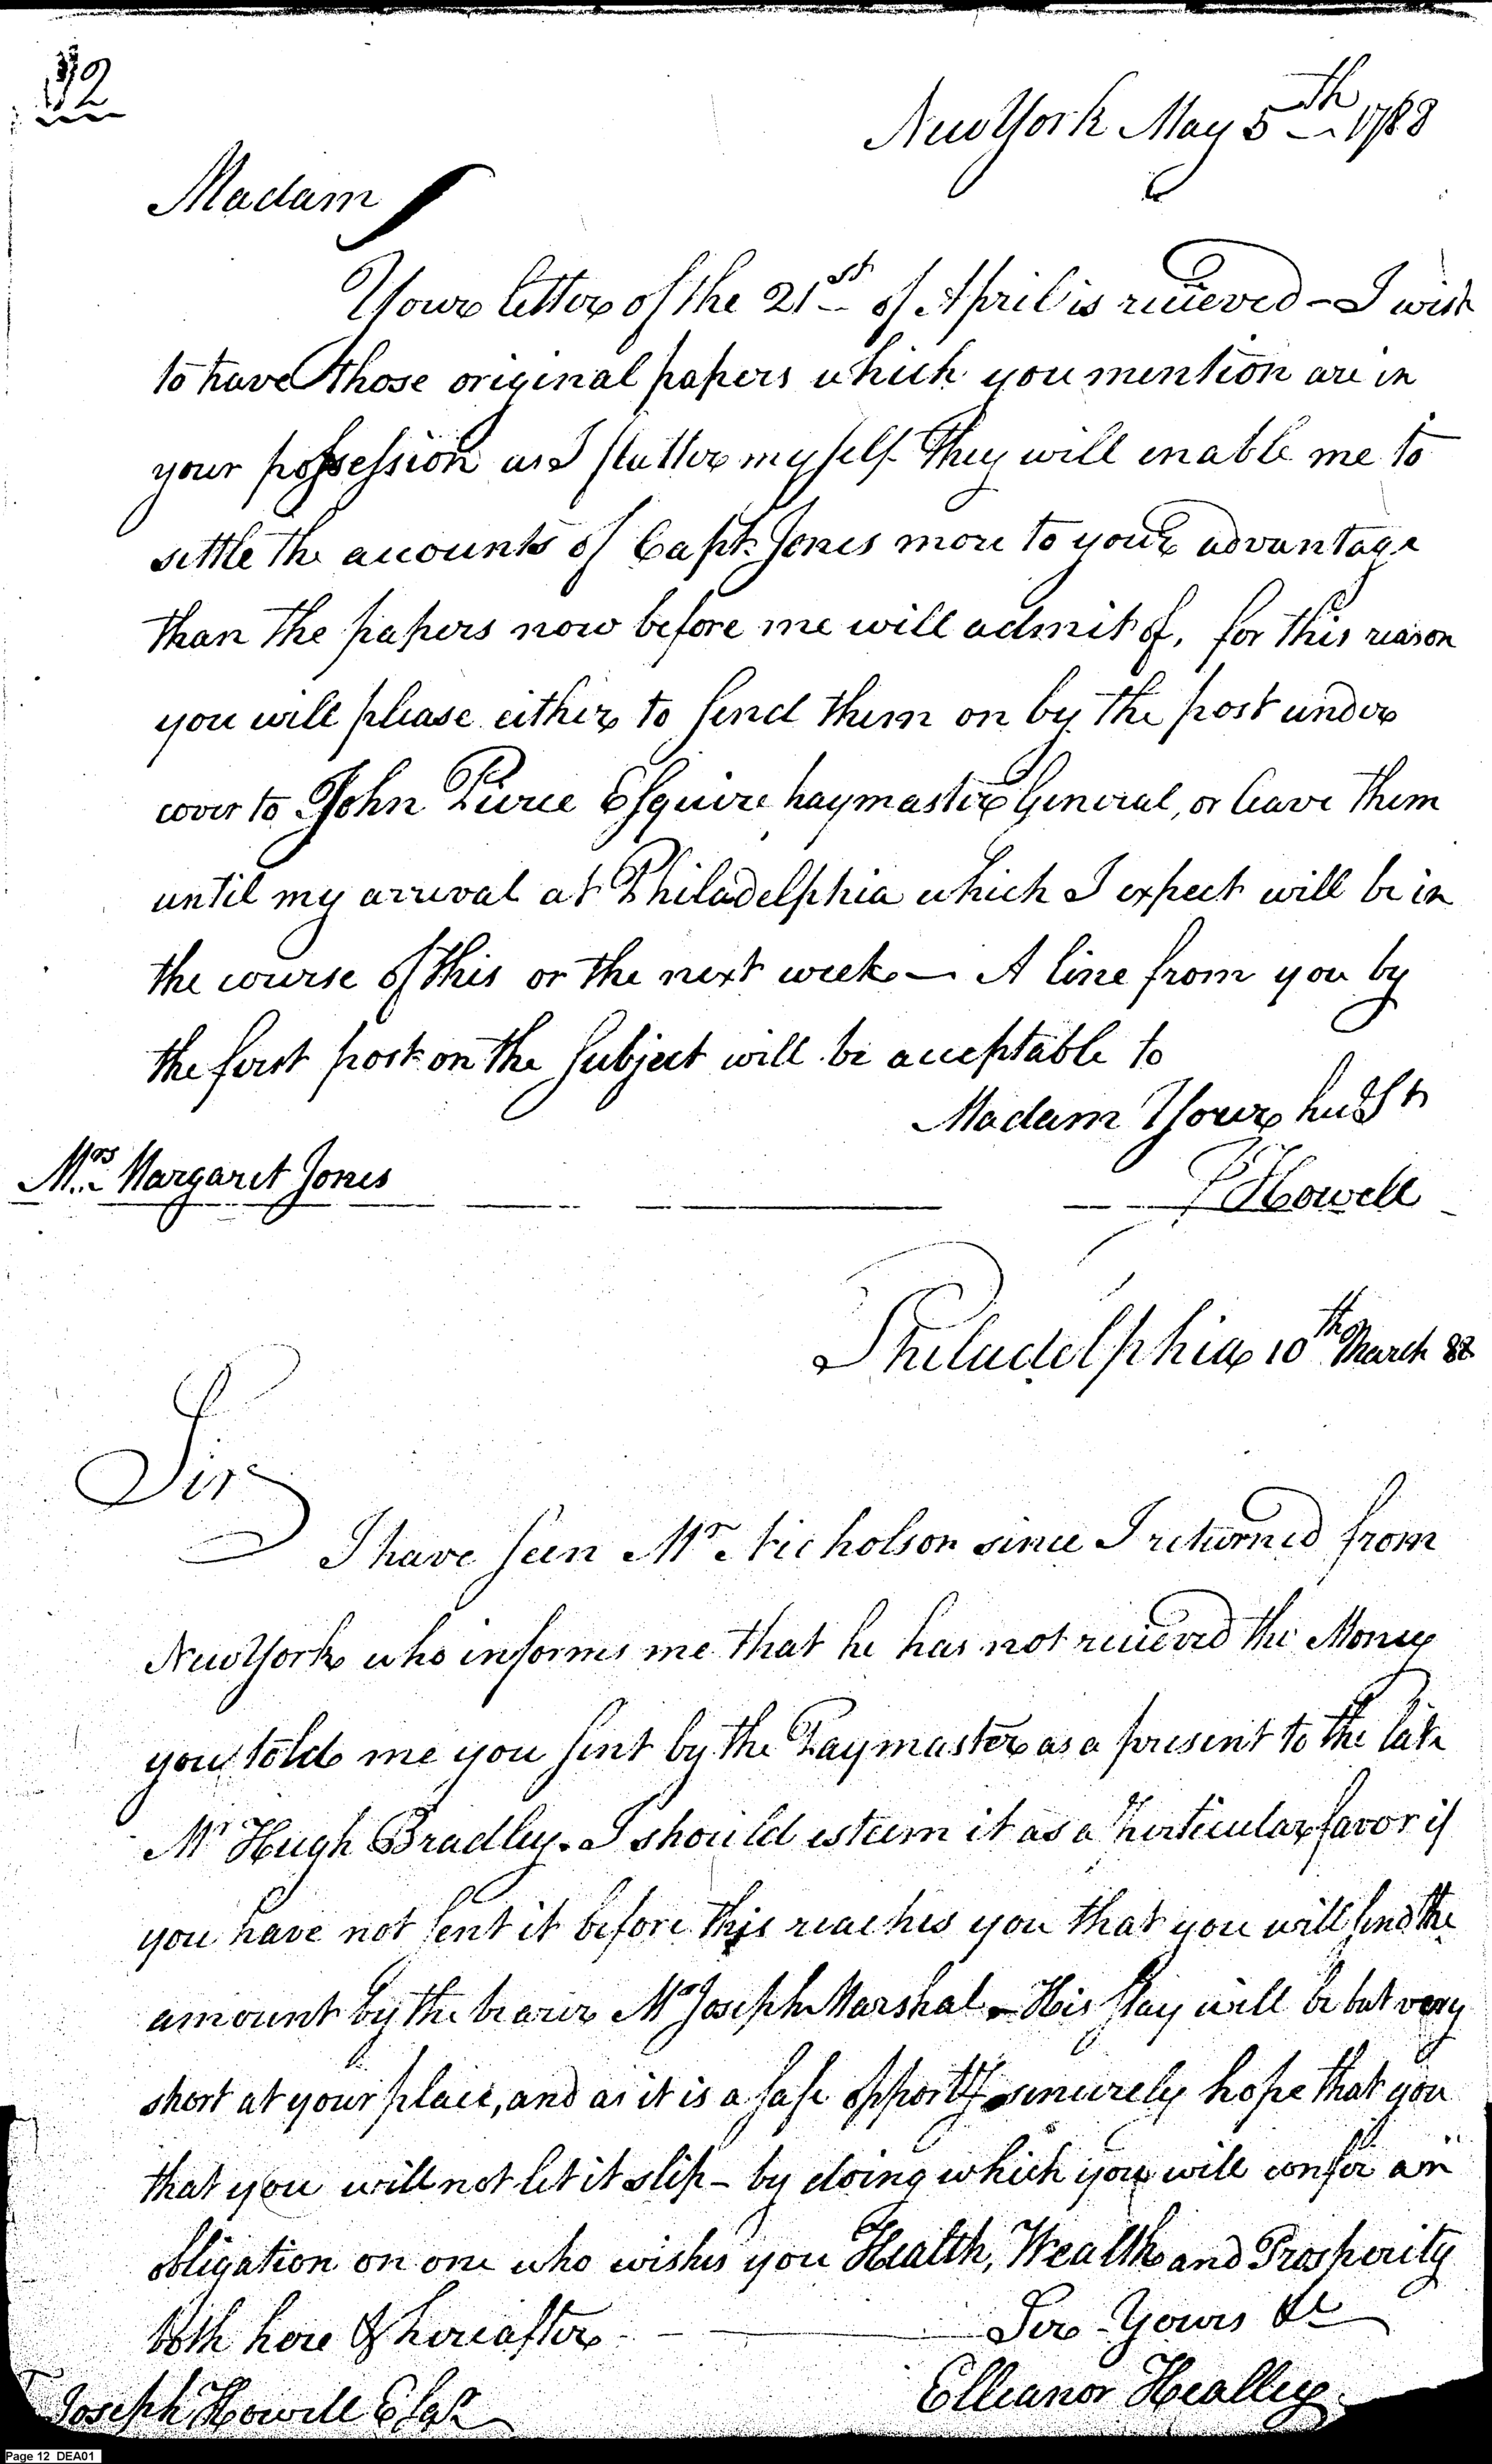 12
New York May 5th 1788
Madam
Your letter of the 21st of April is recieved - I wish
to have those original papers which you mention are in
your possession as I flatter myself they will enable me to
settle the accounts of Capt. Jones more to your advantage
than the papers now before me will admit of, for this reason
you will please either to send them on by the post under
cover to John Pierce Esquire paymaster General, or leave them
until my arrival at Philadelphia which I expect will be in
the course of this or the next week — A line from you by
the first post on the subject will be acceptable to
Madam Your
Mrs Margaret Jones
Howell
Philadelphia 10th March 88
Sir
I have seen Mr Nicholson since I returned from
New York who informs me that he has not recieved the Money
you told me you sent by the Paymaster as a present to the late
Mr Hugh Bradley. I should esteem it as a perticular favor if
you have not sent it before this reaches you that you will send the
amount by the bearer Mr Joseph Marshal - His stay will be but very
short at your place, and as it is a safe opporty sincerely hope that you
that you will not let it slip - by doing which you will confer an
obligation on one who wishes you Health, Wealth and Prosperity
both here & hereafter
Sir - Yours &c
Elleanor Healley
Joseph Howell Esqr
Page 12 DEA01